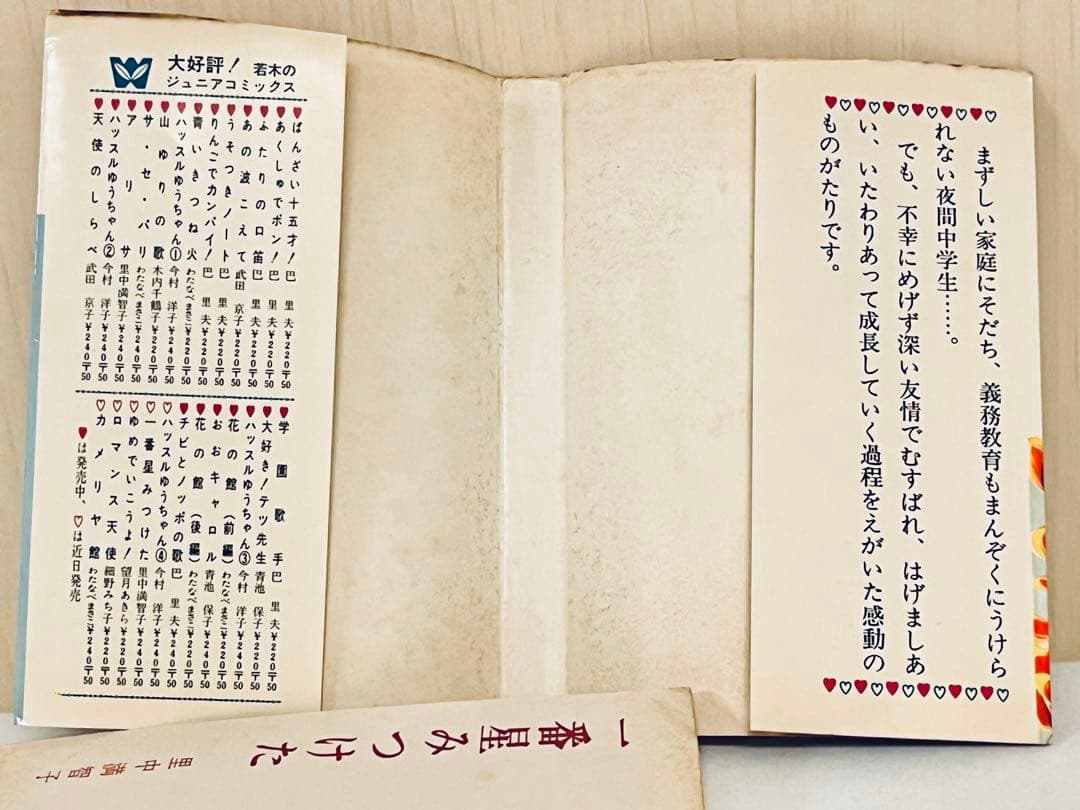 大好評! 若木の
ジュニアコミックス
♥ばんざい十五才! 巴 里夫 ¥220〒50
♥あくしゅでポン! 巴 里夫 ¥220〒50
♥ふたりの口笛 巴 里夫 ¥220〒50
♥あの波こえて 武田 京子 ¥240〒50
♥うそつきノート 巴 里夫 ¥220〒50
♥りんごでカンパイ! 巴 里夫 ¥220〒50
♥青いきつね火 わたなべまさこ ¥220〒50
♥ハッスルゆうちゃん① 今村 洋子 ¥240〒50
♥山ゆりの歌 木内千鶴子 ¥220〒50
♥サ・セ・パリ わたなべまさこ ¥240〒50
♥アリサ 里中満智子 ¥240〒50
♥ハッスルゆうちゃん② 今村 洋子 ¥240〒50
♥天使のしらべ 武田 京子 ¥240〒50
♥学園歌手 巴 里夫 ¥220〒50
♥大好き!テツ先生 青池 保子 ¥220〒50
♥ハッスルゆうちゃん③ 今村 洋子 ¥240〒50
♥花の館(前編) わたなべまさこ ¥220〒50
♥おおキャロル 青池 保子 ¥220〒50
♥花の館(後編) わたなべまさこ ¥220〒50
♥チビとノッポの歌 巴 里夫 ¥240〒50
♡ハッスルゆうちゃん④ 今村 洋子 ¥240〒50
♡一番星みつけた 里中満智子 ¥240〒50
♡ゆめでいこうよ! 望月あきら ¥220〒50
♡ロマンス天使 細野みち子 ¥220〒50
♡カメリヤ館 わたなべまさこ ¥240〒50
♥は発売中、♡は近日発売
まずしい家庭にそだち、義務教育もまんぞくにうけら
れない夜間中学生……。
でも、不幸にめげず深い友情でむすばれ、はげましあ
い、いたわりあって成長していく過程をえがいた感動の
ものがたりです。
一番星みつけた
里中満智子